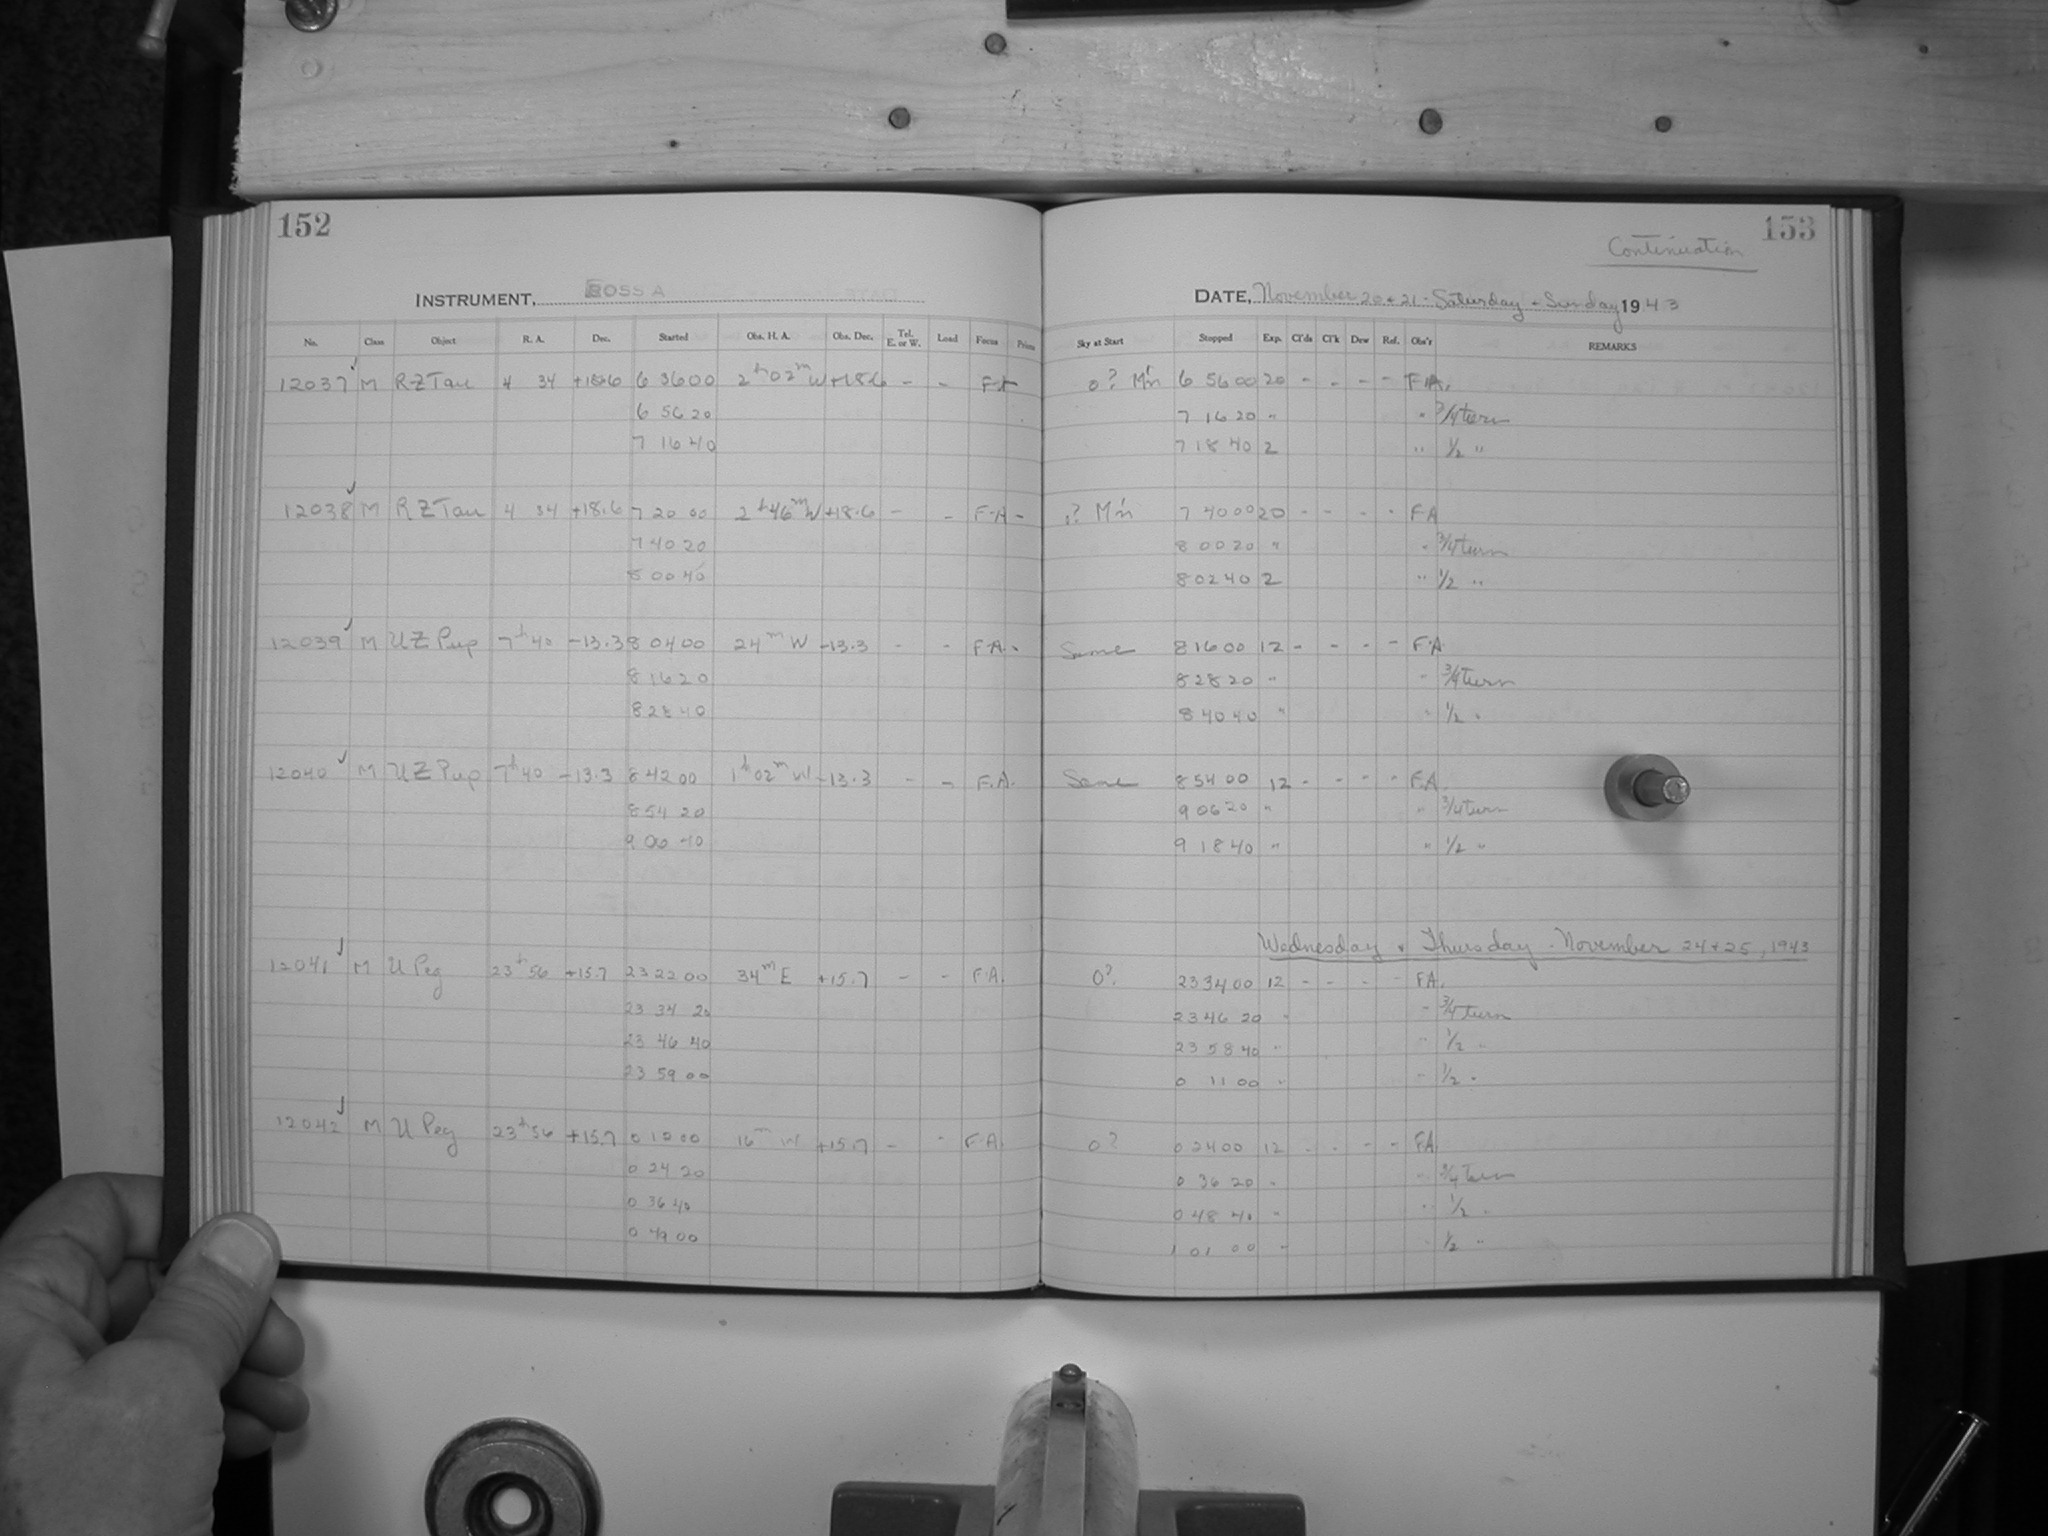 152
153
Continuation
INSTRUMENT, ROSS A
DATE, November 20 + 21 - Saturday + Sunday 1943
No. Class Object R. A. Dec. Started Obs. H. A. Obs. Dec. Tel. E. or W. Load Focus Prism Sky at Start Stopped Exp. Cl'ds Cl'k Dew Ref. Obs'r REMARKS
12037 M RZ Tau 4 34 +18.6 6 36 00 2h 02m W +18.6 - - FA 0? M'n 6 56 00 20 - - - - F.A.
6 56 20 7 16 20 " " 3/4 turn
7 16 40 7 18 40 2 " 1/2 "
12038 M RZ Tau 4 34 +18.6 7 20 00 2h 46m W +18.6 - - F.A - ? M'n 7 40 00 20 - - - - FA
7 40 20 8 00 20 " " 3/4 turn
8 00 40 8 02 40 2 " 1/2 "
12039 M UZ Pup 7h 40 -13.3 8 04 00 24m W -13.3 - - F.A. - Same 8 16 00 12 - - - - F.A
8 16 20 8 28 20 " " 3/4 turn
8 28 40 8 40 40 " " 1/2 "
12040 M UZ Pup 7h 40 -13.3 8 42 00 1h 02m W -13.3 - - F.A. Same 8 54 00 12 - - - - F.A.
8 54 20 9 06 20 " " 3/4 turn
9 06 40 9 18 40 " " 1/2 "
Wednesday + Thursday - November 24 + 25, 1943
12041 M U Peg 23h 56 +15.7 23 22 00 34m E +15.7 - - F.A. 0? 23 34 00 12 - - - - FA.
23 34 20 23 46 20 " " 3/4 turn
23 46 40 23 58 40 " " 1/2 "
23 59 00 0 11 00 " " 1/2 "
12042 M U Peg 23h 56 +15.7 0 12 00 16m W +15.7 - - F.A. 0? 0 24 00 12 - - - - FA
0 24 20 0 36 20 " " 3/4 turn
0 36 40 0 48 40 " " 1/2 "
0 49 00 1 01 00 " " 1/2 "